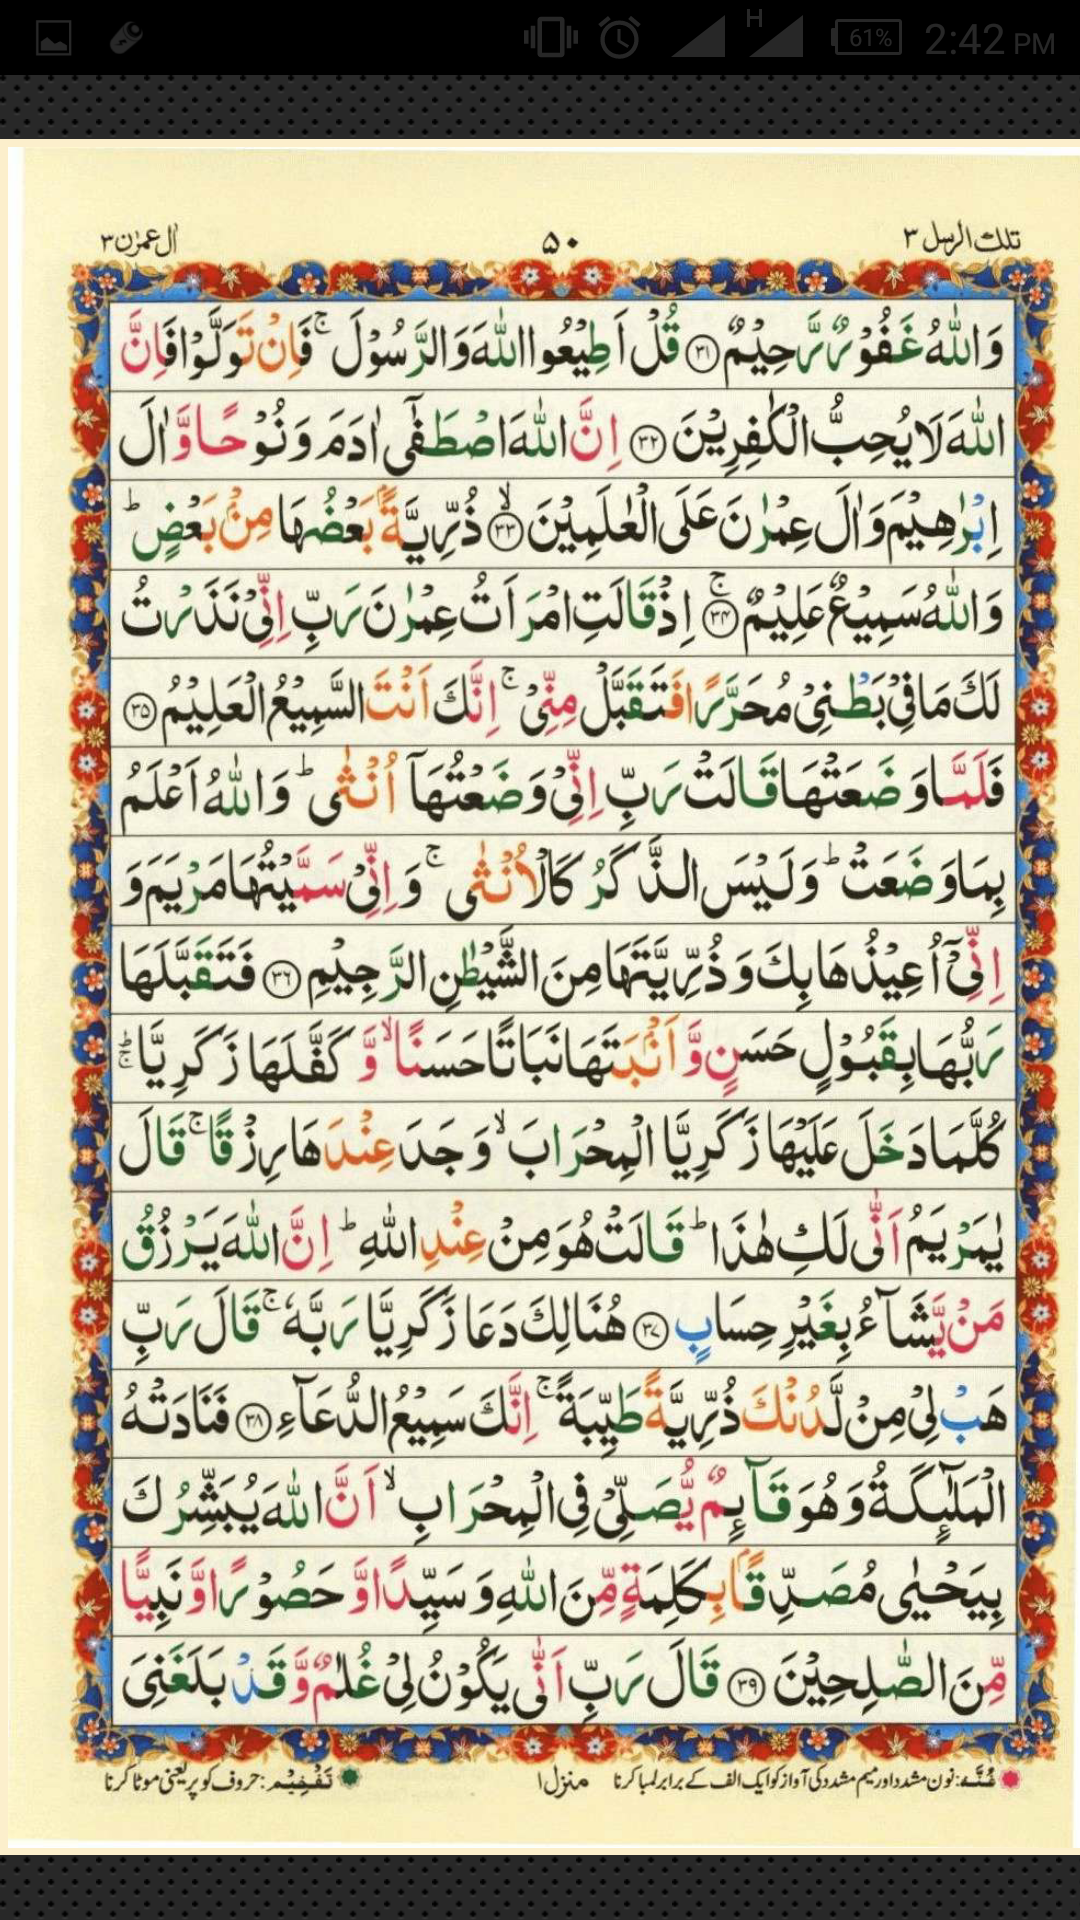 61% 2:42 PM
H
تلك الرسل ٣ ٥٠ اٰل عمرٰن ٣
وَاللّٰهُ غَفُوْرٌ رَّحِيْمٌ ﴿٣١﴾ قُلْ اَطِيْعُوا اللّٰهَ وَالرَّسُوْلَ ۚ فَاِنْ تَوَلَّوْا فَاِنَّ
اللّٰهَ لَا يُحِبُّ الْكٰفِرِيْنَ ﴿٣٢﴾ اِنَّ اللّٰهَ اصْطَفٰٓى اٰدَمَ وَنُوْحًا وَّاٰلَ
اِبْرٰهِيْمَ وَاٰلَ عِمْرٰنَ عَلَى الْعٰلَمِيْنَ ۙ﴿٣٣﴾ ذُرِّيَّةًۢ بَعْضُهَا مِنْۢ بَعْضٍ ؕ
وَاللّٰهُ سَمِيْعٌ عَلِيْمٌ ۚ﴿٣٤﴾ اِذْ قَالَتِ امْرَاَتُ عِمْرٰنَ رَبِّ اِنِّىْ نَذَرْتُ
لَكَ مَا فِىْ بَطْنِىْ مُحَرَّرًا فَتَقَبَّلْ مِنِّىْ ۚ اِنَّكَ اَنْتَ السَّمِيْعُ الْعَلِيْمُ ﴿٣٥﴾
فَلَمَّا وَضَعَتْهَا قَالَتْ رَبِّ اِنِّىْ وَضَعْتُهَاۤ اُنْثٰى ؕ وَاللّٰهُ اَعْلَمُ
بِمَا وَضَعَتْ ؕ وَلَيْسَ الذَّكَرُ كَالْاُنْثٰى ۚ وَاِنِّىْ سَمَّيْتُهَا مَرْيَمَ وَ
اِنِّىْۤ اُعِيْذُهَا بِكَ وَذُرِّيَّتَهَا مِنَ الشَّيْطٰنِ الرَّجِيْمِ ﴿٣٦﴾ فَتَقَبَّلَهَا
رَبُّهَا بِقَبُوْلٍ حَسَنٍ وَّاَنْۢبَتَهَا نَبَاتًا حَسَنًا ۙ وَّكَفَّلَهَا زَكَرِيَّا ۚؕ
كُلَّمَا دَخَلَ عَلَيْهَا زَكَرِيَّا الْمِحْرَابَ ۙ وَجَدَ عِنْدَهَا رِزْقًا ۚ قَالَ
يٰمَرْيَمُ اَنّٰى لَكِ هٰذَا ؕ قَالَتْ هُوَ مِنْ عِنْدِ اللّٰهِ ؕ اِنَّ اللّٰهَ يَرْزُقُ
مَنْ يَّشَآءُ بِغَيْرِ حِسَابٍ ﴿٣٧﴾ هُنَالِكَ دَعَا زَكَرِيَّا رَبَّهٗ ۚ قَالَ رَبِّ
هَبْ لِىْ مِنْ لَّدُنْكَ ذُرِّيَّةً طَيِّبَةً ۚ اِنَّكَ سَمِيْعُ الدُّعَآءِ ﴿٣٨﴾ فَنَادَتْهُ
الْمَلٰٓئِكَةُ وَهُوَ قَآئِمٌ يُّصَلِّىْ فِى الْمِحْرَابِ ۙ اَنَّ اللّٰهَ يُبَشِّرُكَ
بِيَحْيٰى مُصَدِّقًۢا بِكَلِمَةٍ مِّنَ اللّٰهِ وَسَيِّدًا وَّحَصُوْرًا وَّنَبِيًّا
مِّنَ الصّٰلِحِيْنَ ﴿٣٩﴾ قَالَ رَبِّ اَنّٰى يَكُوْنُ لِىْ غُلٰمٌ وَّقَدْ بَلَغَنِىَ
غُنَّه: نون مشدد اور میم مشدد کی آواز کو ایک الف کے برابر لمبا کرنا منزل ١ تَفْخِیْم: حروف کو پُر یعنی موٹا کرنا